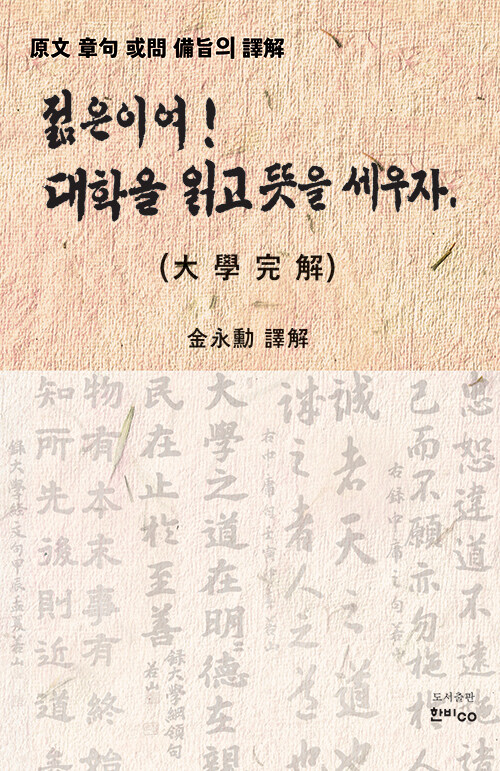 原文 章句 或問 備旨의 譯解
젊은이여!
대학을 읽고 뜻을 세우자.
(大學完解)
金永勳 譯解
忠恕違道不遠
己而不願亦勿施於
右錄中庸之句若山
誠者天之道也
誠之者人之道也
大學之道在明明德在親
民在止於至善
錄大學綱領句
若山
物有本末事有終始
知所先後則近道
도서출판
한비CO